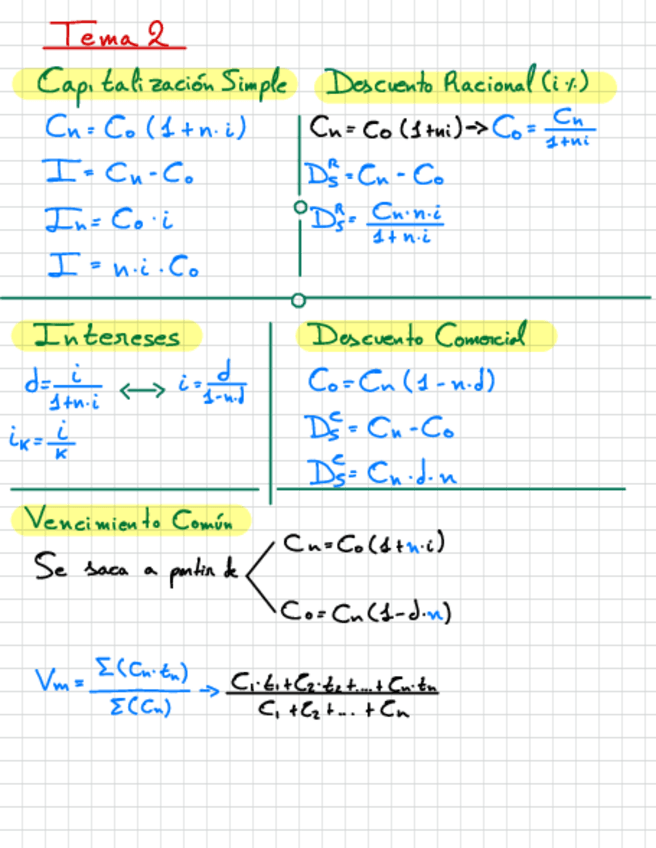 Tema 2
Capitalización Simple
Cn = C₀ (1 + n·i)
I = Cn - C₀
In = C₀ · i
I = n·i·C₀
Descuento Racional (i%)
Cn = C₀ (1+ni) -> C₀ = Cn / 1+ni
Dₛᴿ = Cn - C₀
Dₛᴿ = Cn·n·i / 1+n·i
Intereses
d = i / 1+n·i ⟷ i = d / 1-n·d
iₖ = i / k
Descuento Comercial
C₀ = Cn (1 - n·d)
Dₛᶜ = Cn - C₀
Dₛᶜ = Cn·d·n
Vencimiento Común
Se saca a partir de
Cn = C₀ (1+n·i)
C₀ = Cn (1-d·n)
Vm = Σ(Cn·tn) / Σ(Cn) → C₁·t₁+C₂·t₂+...+Cn·tn / C₁+C₂+...+Cn